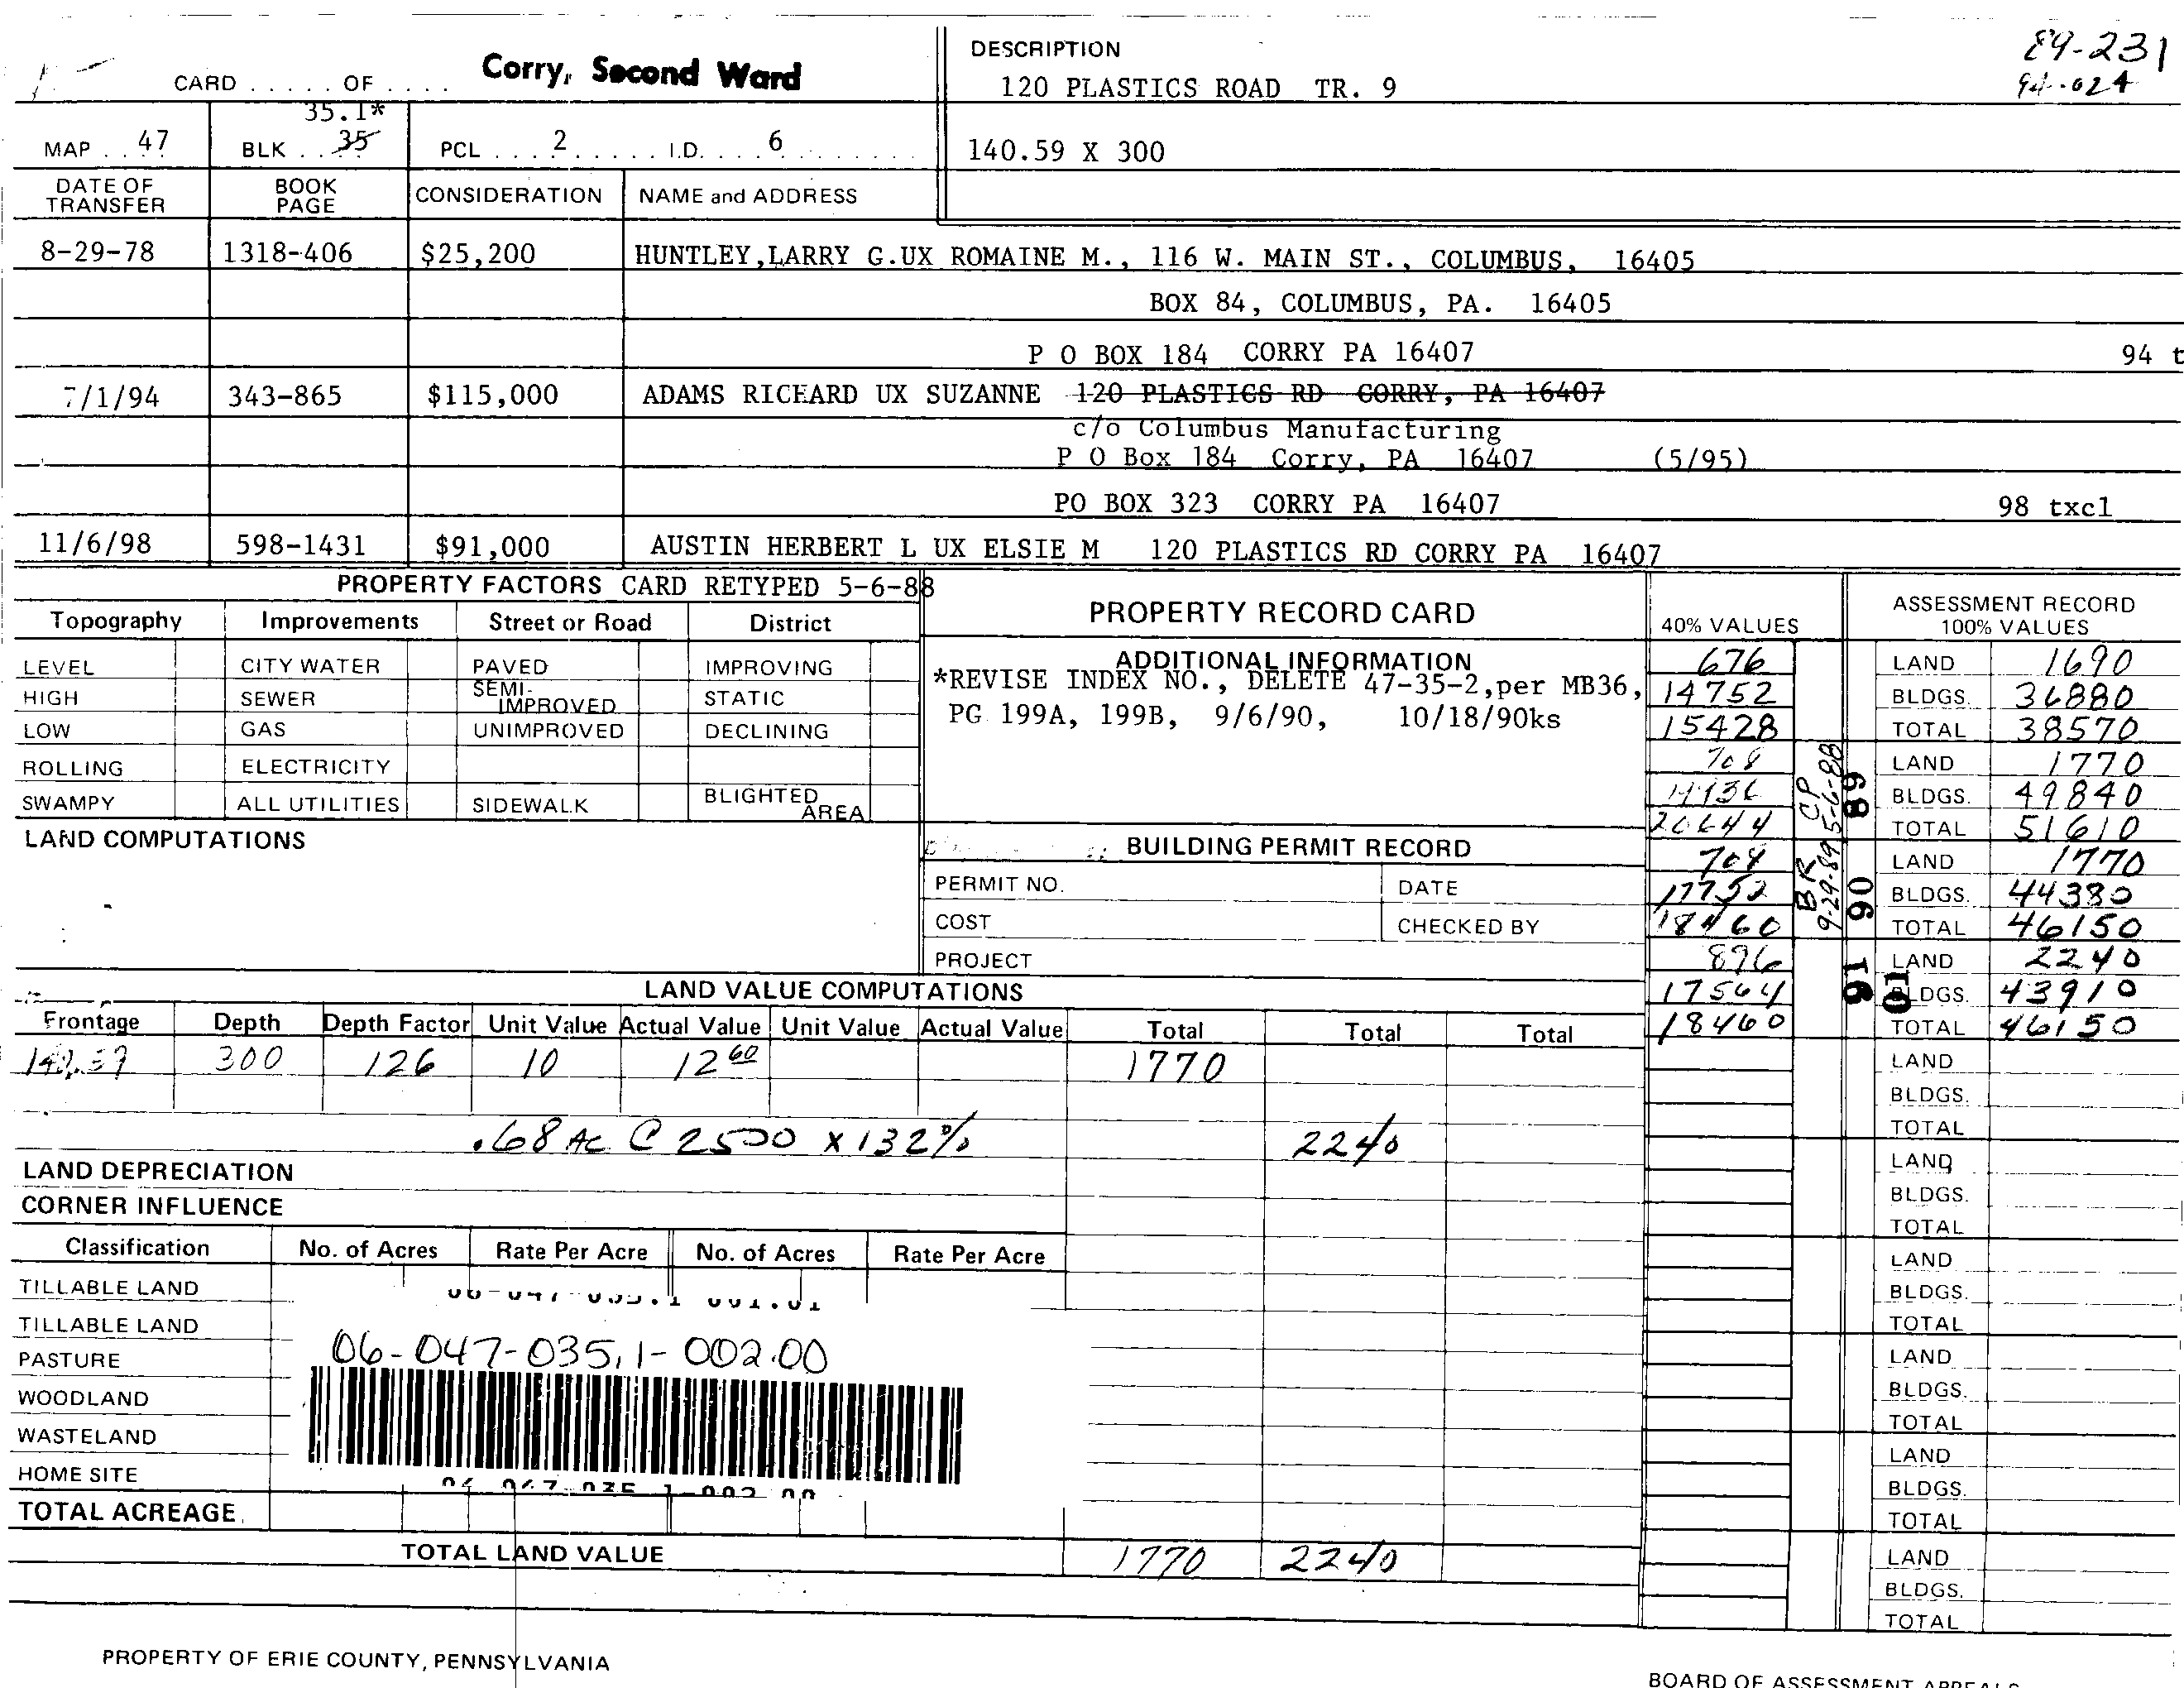 CARD ..... OF .... Corry, Second Ward
DESCRIPTION
120 PLASTICS ROAD TR. 9
89-231
94-024
35.1*
MAP .. 47 BLK .. 35 PCL .... 2 ...... I.D. .... 6 ........
140.59 X 300
DATE OF TRANSFER BOOK PAGE CONSIDERATION NAME and ADDRESS
8-29-78 1318-406 $25,200 HUNTLEY,LARRY G.UX ROMAINE M., 116 W. MAIN ST., COLUMBUS, 16405
BOX 84, COLUMBUS, PA. 16405
P O BOX 184 CORRY PA 16407 94 t
7/1/94 343-865 $115,000 ADAMS RICHARD UX SUZANNE 120 PLASTICS RD CORRY, PA 16407
c/o Columbus Manufacturing
P O Box 184 Corry, PA 16407 (5/95)
PO BOX 323 CORRY PA 16407 98 txcl
11/6/98 598-1431 $91,000 AUSTIN HERBERT L UX ELSIE M 120 PLASTICS RD CORRY PA 16407
PROPERTY FACTORS CARD RETYPED 5-6-88
Topography Improvements Street or Road District
LEVEL CITY WATER PAVED IMPROVING
HIGH SEWER SEMI-IMPROVED STATIC
LOW GAS UNIMPROVED DECLINING
ROLLING ELECTRICITY
SWAMPY ALL UTILITIES SIDEWALK BLIGHTED AREA
PROPERTY RECORD CARD
ADDITIONAL INFORMATION
*REVISE INDEX NO., DELETE 47-35-2,per MB36,
PG 199A, 199B, 9/6/90, 10/18/90ks
40% VALUES ASSESSMENT RECORD
100% VALUES
676 LAND 1690
14752 BLDGS. 36880
15428 TOTAL 38570
708 LAND 1770
19936 BLDGS. 49840
20644 TOTAL 51610
CP 5-6-88 89
708 LAND 1770
17752 BLDGS. 44380
18460 TOTAL 46150
BR 9-29-89 90
896 LAND 2240
17564 BLDGS. 43910
18460 TOTAL 46150
91 10
LAND
BLDGS.
TOTAL
LAND
BLDGS.
TOTAL
LAND
BLDGS.
TOTAL
LAND
BLDGS.
TOTAL
LAND
BLDGS.
TOTAL
LAND
BLDGS.
TOTAL
LAND COMPUTATIONS
BUILDING PERMIT RECORD
PERMIT NO. DATE
COST CHECKED BY
PROJECT
LAND VALUE COMPUTATIONS
Frontage Depth Depth Factor Unit Value Actual Value Unit Value Actual Value Total Total Total
140.59 300 126 10 12 60 1770
.68 AC @ 2500 X 132% 2240
LAND DEPRECIATION
CORNER INFLUENCE
Classification No. of Acres Rate Per Acre No. of Acres Rate Per Acre
TILLABLE LAND
TILLABLE LAND
06-047-035.1-002.00
PASTURE
WOODLAND
WASTELAND
HOME SITE
06-047-035.1-002.00
TOTAL ACREAGE
TOTAL LAND VALUE 1770 2240
PROPERTY OF ERIE COUNTY, PENNSYLVANIA
BOARD OF ASSESSMENT APPEALS